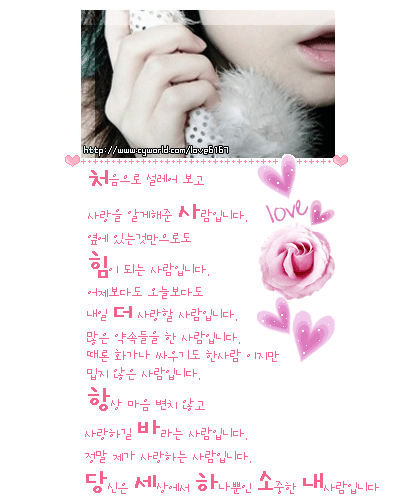 http://www.cyworld.com/love6167
처음으로 설레어 보고
사랑을 알게해준 사람입니다.
love
옆에 있는것만으로도
힘이 되는 사람입니다.
어제보다도 오늘보다도
내일 더 사랑할 사람입니다.
많은 약속들을 한 사람입니다.
때론 화가나 싸우기도 한사람 이지만
밉지 않은 사람입니다.
항상 마음 변치 않고
사랑하길 바라는 사람입니다.
정말 제가 사랑하는 사람입니다.
당신은 세상에서 하나뿐인 소중한 내사람입니다